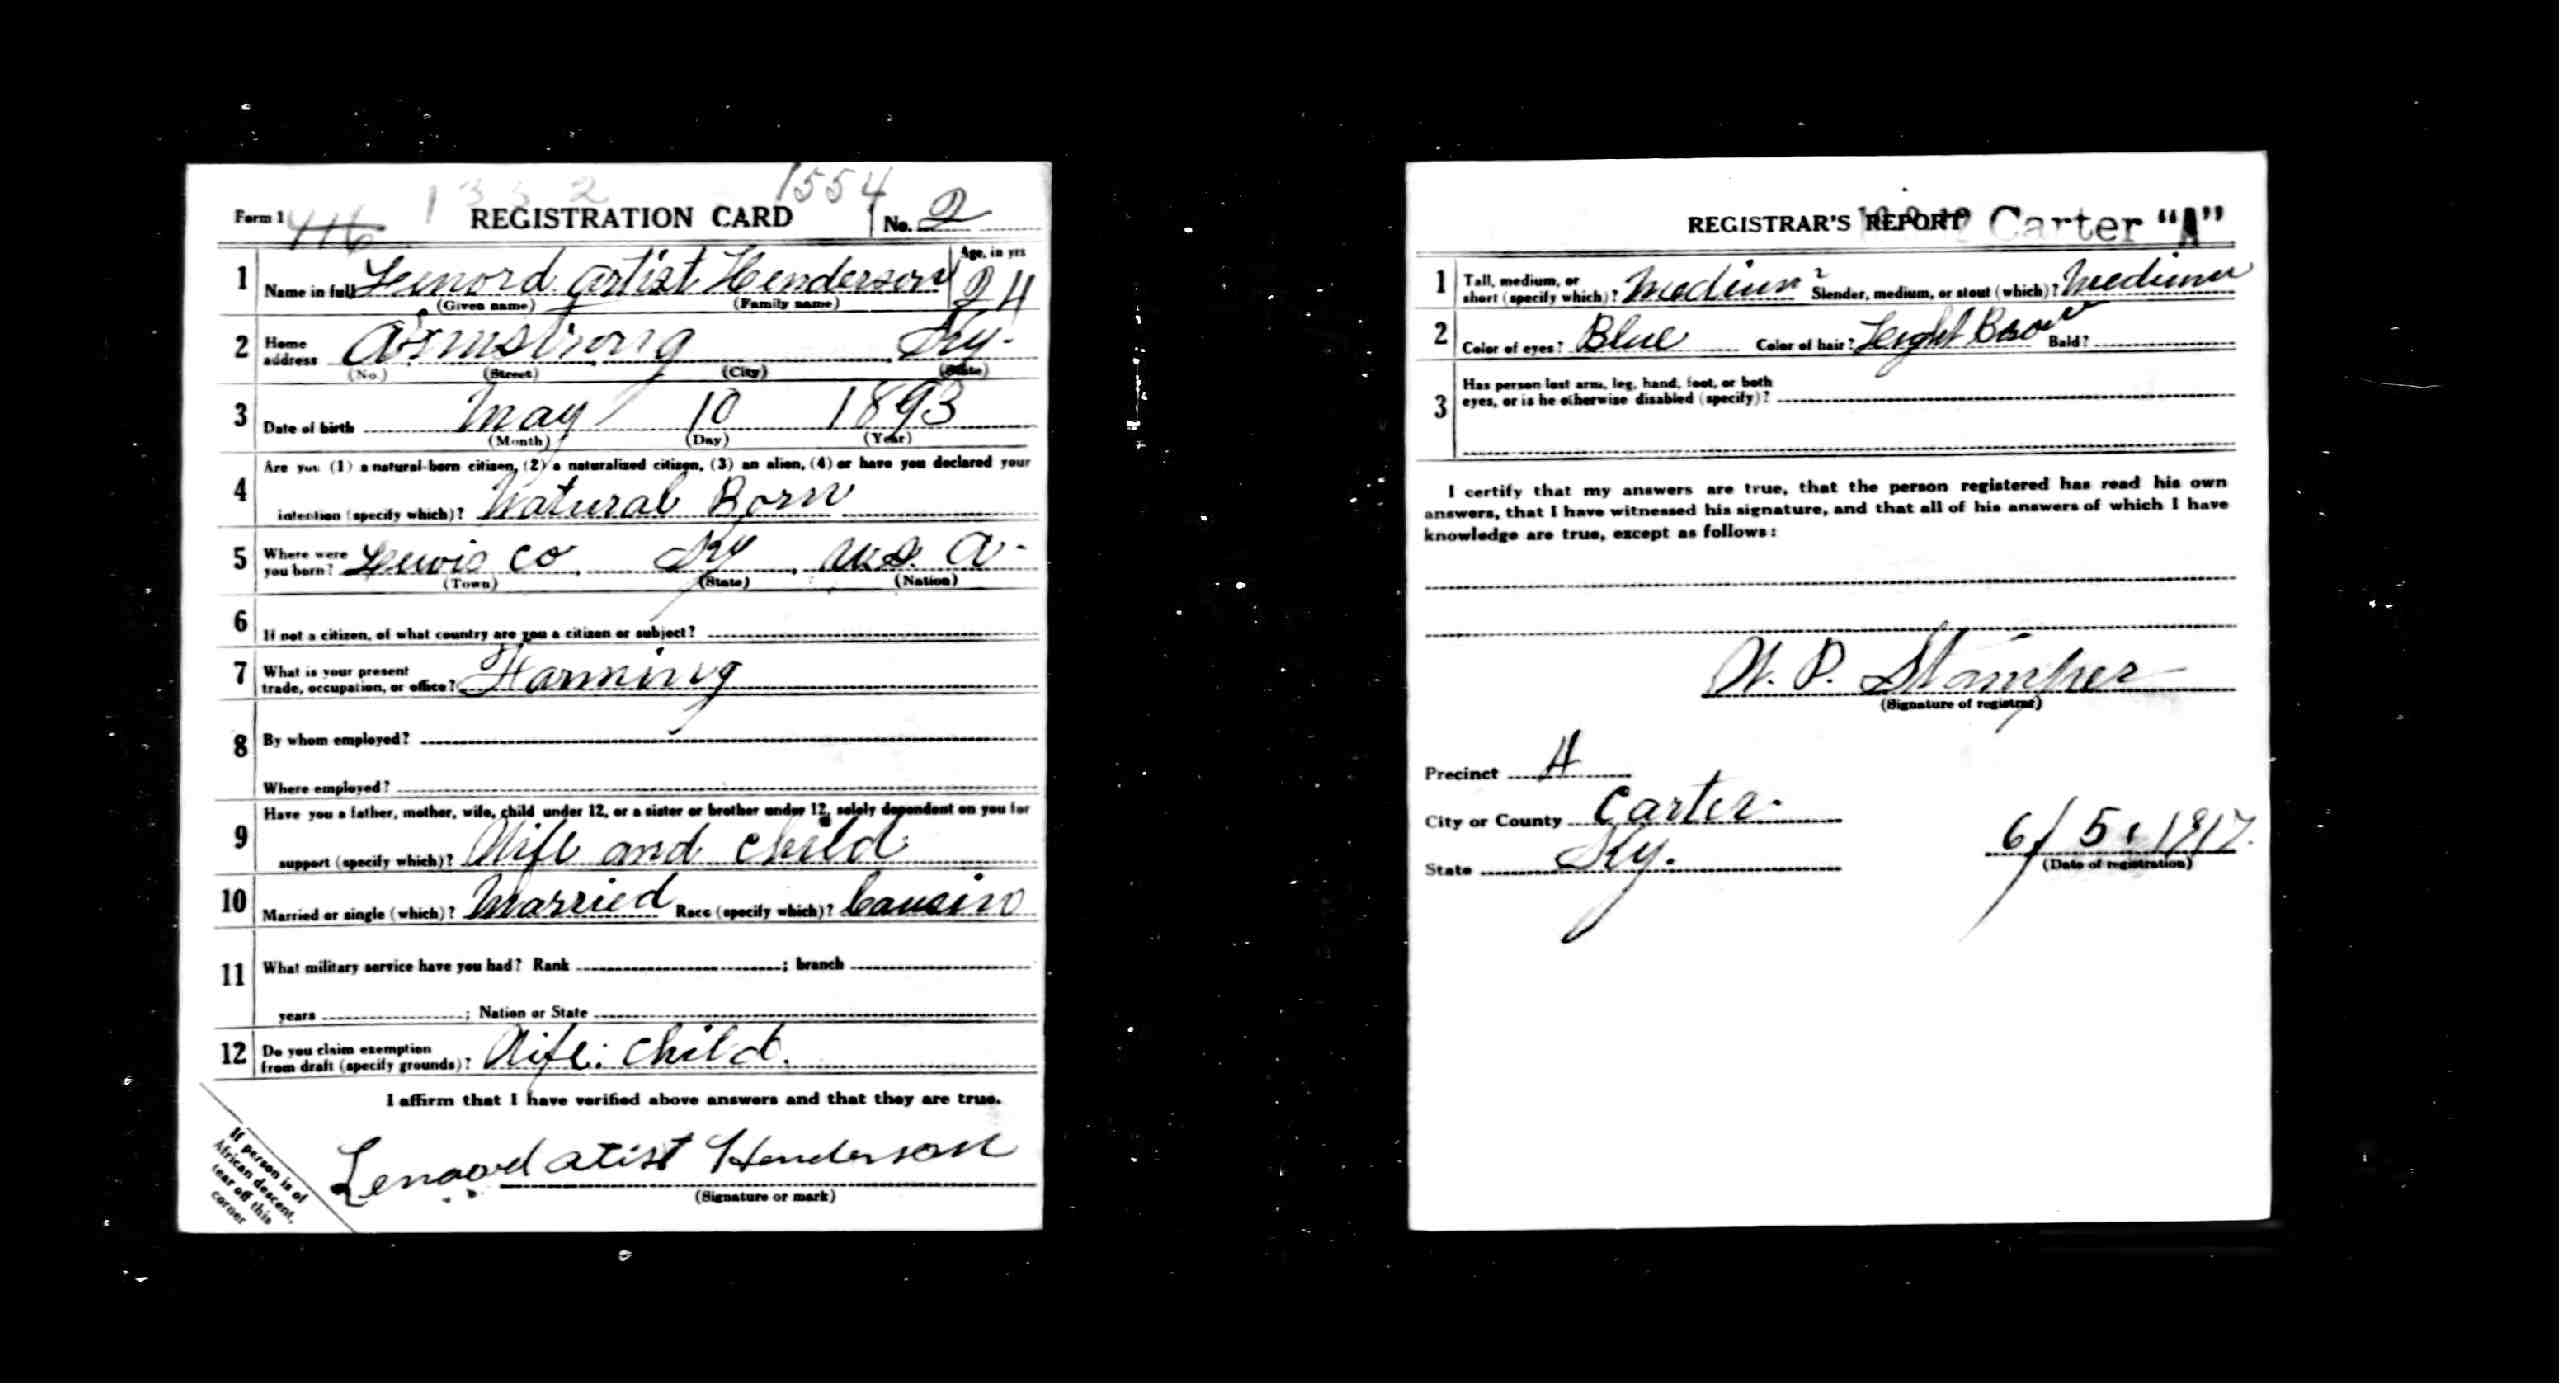 1332 1554
Form 1 416 REGISTRATION CARD No. 2
1 Name in full Lenord Artist Henderson Age, in yrs 24
(Given name) (Family name)
2 Home address Armstrong, Ky.
(No.) (Street) (City) (State)
3 Date of birth May 10 1893
(Month) (Day) (Year)
4 Are you (1) a natural-born citizen, (2) a naturalized citizen, (3) an alien, (4) or have you declared your
intention (specify which)? Natural Born
5 Where were you born? Lewis Co, Ky, U.S. A.
(Town) (State) (Nation)
6 If not a citizen, of what country are you a citizen or subject?
7 What is your present trade, occupation, or office? Farming
8 By whom employed?
Where employed?
9 Have you a father, mother, wife, child under 12, or a sister or brother under 12, solely dependent on you for
support (specify which)? Wife and child
10 Married or single (which)? Married Race (specify which)? Causin
11 What military service have you had? Rank ; branch
years ; Nation or State
12 Do you claim exemption from draft (specify grounds)? Wife. Child.
I affirm that I have verified above answers and that they are true.
Lenoord atist Henderson
(Signature or mark)
If person is of
African descent,
tear off this
corner
REGISTRAR'S REPORT Carter "A"
1 Tall, medium, or short (specify which)? Medium Slender, medium, or stout (which)? Medium
2 Color of eyes? Blue Color of hair? Light Brown Bald?
3 Has person lost arm, leg, hand, foot, or both
eyes, or is he otherwise disabled (specify)?
I certify that my answers are true, that the person registered has read his own
answers, that I have witnessed his signature, and that all of his answers of which I have
knowledge are true, except as follows:
W. P. Stamper
(Signature of registrar)
Precinct A
City or County Carter.
State Ky. 6/5. 1917.
(Date of registration)